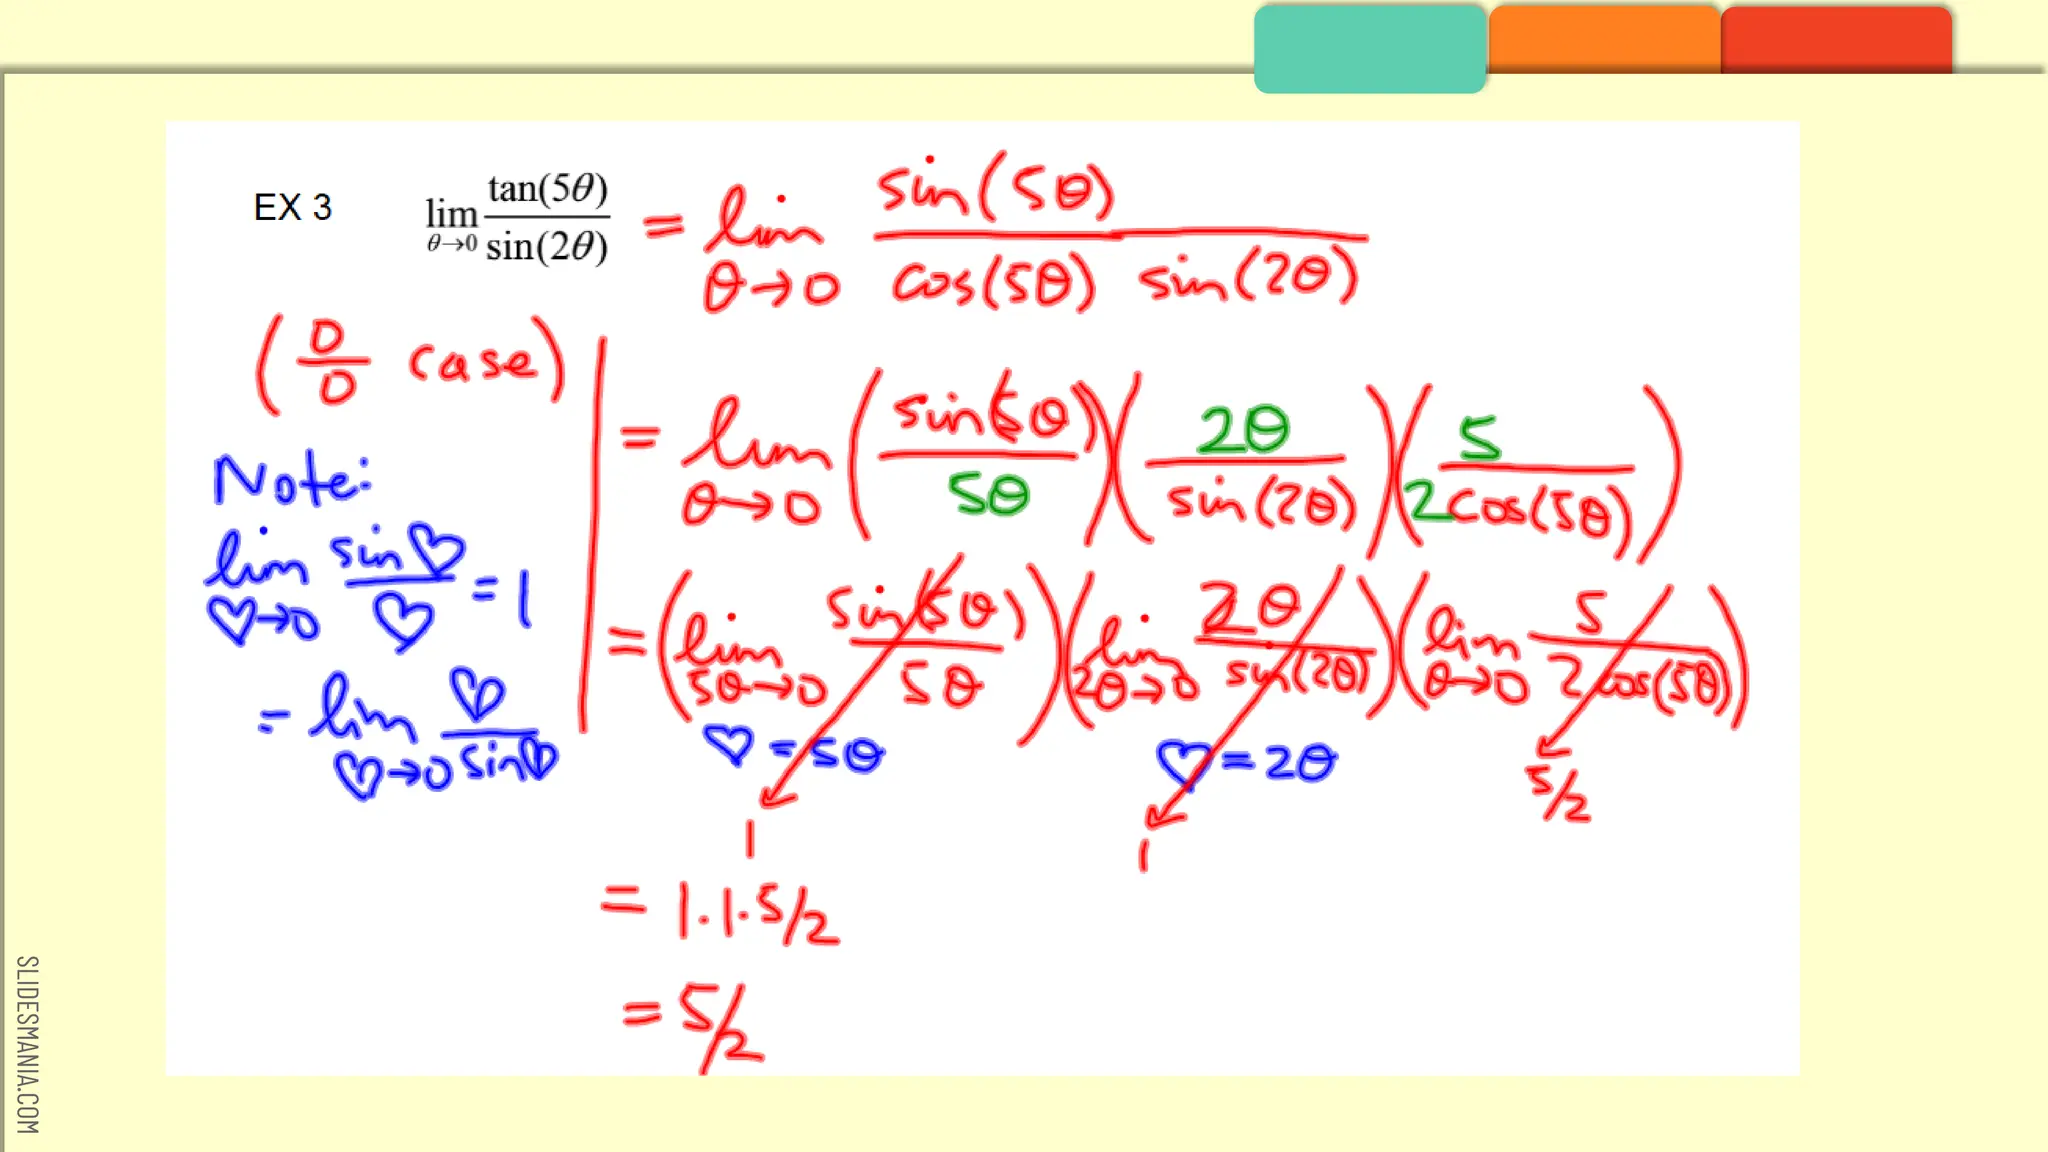 EX 3 lim θ→0 tan(5θ)/sin(2θ) = lim θ→0 sin(5θ)/cos(5θ) sin(2θ)
(0/0 case)
= lim θ→0 (sin(5θ)/5θ)(2θ/sin(2θ))(5/2cos(5θ))
Note:
lim ♡→0 sin♡/♡ = 1
= lim ♡→0 ♡/sin♡
= (lim 5θ→0 sin(5θ)/5θ)(lim 2θ→0 2θ/sin(2θ))(lim θ→0 5/2cos(5θ))
♡ = 5θ ♡ = 2θ 5/2
1 1
= 1.1.5/2
= 5/2
SLIDESMANIA.COM